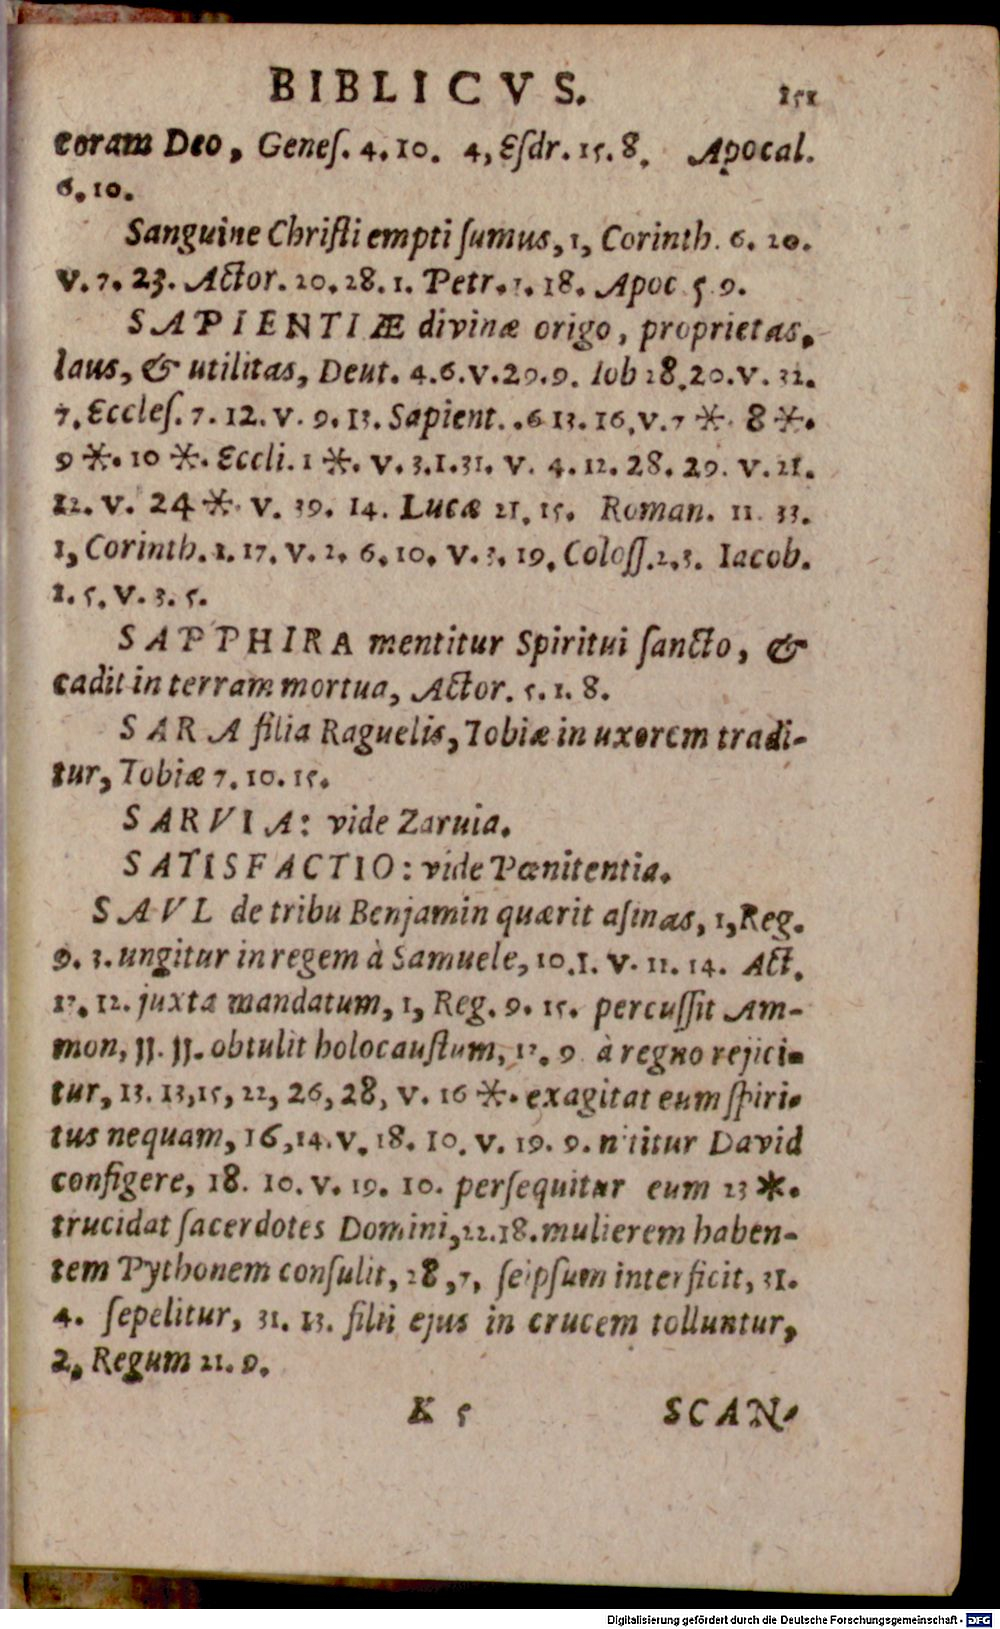 BIBLICVS. 151
coram Deo, Geneſ. 4. 10. 4, Eſdr. 15. 8. Apocal.
6. 10.
Sanguine Chriſti empti ſumus, 1, Corinth. 6. 20.
V. 7. 23. Actor. 20. 28. 1. Petr. 1. 18. Apoc 5 9.
SAPIENTIÆ divinæ origo, proprietas,
laus, & utilitas, Deut. 4. 6. V. 29. 9. Iob 28. 20. V. 32.
7. Eccleſ. 7. 12. V. 9. 13. Sapient. . 6 13. 16. V. 7 *. 8 *.
9 *. 10 *. Eccli. 1 *. V. 3. 1. 31. V. 4. 12. 28. 29. V. 21.
12. V. 24 *. V. 39. 14. Lucæ 21. 15. Roman. 11 33.
1, Corinth. 1. 17. V. 2. 6. 10. V. 3. 19. Coloſſ. 2. 3. Iacob.
1. 5. V. 3. 5.
SAPPHIRA mentitur Spiritui ſancto, &
cadit in terram mortua, Actor. 5. 1. 8.
SARA filia Raguelis, Tobiæ in uxorem tradi-
tur, Tobiæ 7. 10. 15.
SARVIA: vide Zaruia.
SATISFACTIO: vide Pœnitentia.
SAVL de tribu Benjamin quærit aſinas, 1, Reg.
9. 3. ungitur in regem à Samuele, 10. 1. V. 11. 14. Act.
13. 12. juxta mandatum, 1, Reg. 9. 15. percuſſit Am-
mon, 11. 11. obtulit holocauſtum, 13. 9 à regno rejici-
tur, 13. 13, 15, 22, 26, 28, V. 16 *. exagitat eum ſpiri-
tus nequam, 16, 14. V. 18. 10. V. 19. 9. nititur David
configere, 18. 10. V. 19. 10. perſequitur eum 23 *.
trucidat ſacerdotes Domini, 22. 18. mulierem haben-
tem Pythonem conſulit, 28, 7, ſeipſum interficit, 31.
4. ſepelitur, 31. 13. filii ejus in crucem tolluntur,
2, Regum 21. 9.
K 5 SCAN-
Digitalisierung gefördert durch die Deutsche Forschungsgemeinschaft - DFG